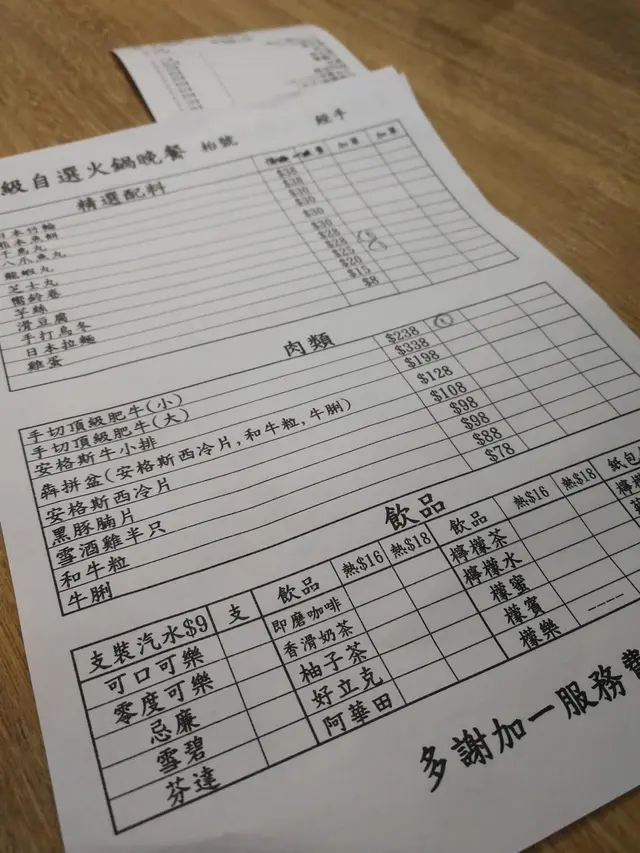 級自選火鍋晚餐 枱號 經手
精選配料 加單 加單
日本竹輪 $38
本魚 $38
魚丸 $30
八爪魚丸 $30
龍蝦丸 $30
芝士丸 $30
響鈴卷 $28
芋絲 $28
滑豆腐 $25
手打烏冬 $20
日本拉麵 $15
雞蛋 $8
肉類
手切頂級肥牛(小) $238
手切頂級肥牛(大) $338
安格斯牛小排 $198
犇拼盆(安格斯西冷片,和牛粒,牛脷) $128
安格斯西冷片 $108
黑豚腩片 $98
雪酒雞半只 $98
和牛粒 $88
牛脷 $78
飲品
支裝汽水$9 支 飲品 熱$16 熱$18 飲品 熱$16 熱$18 紙包
可口可樂 即磨咖啡 檸檬茶 檸
零度可樂 香滑奶茶 檸檬水
忌廉 柚子茶 檬蜜
雪碧 好立克 檬賓
芬達 阿華田 檬樂
多謝加一服務費